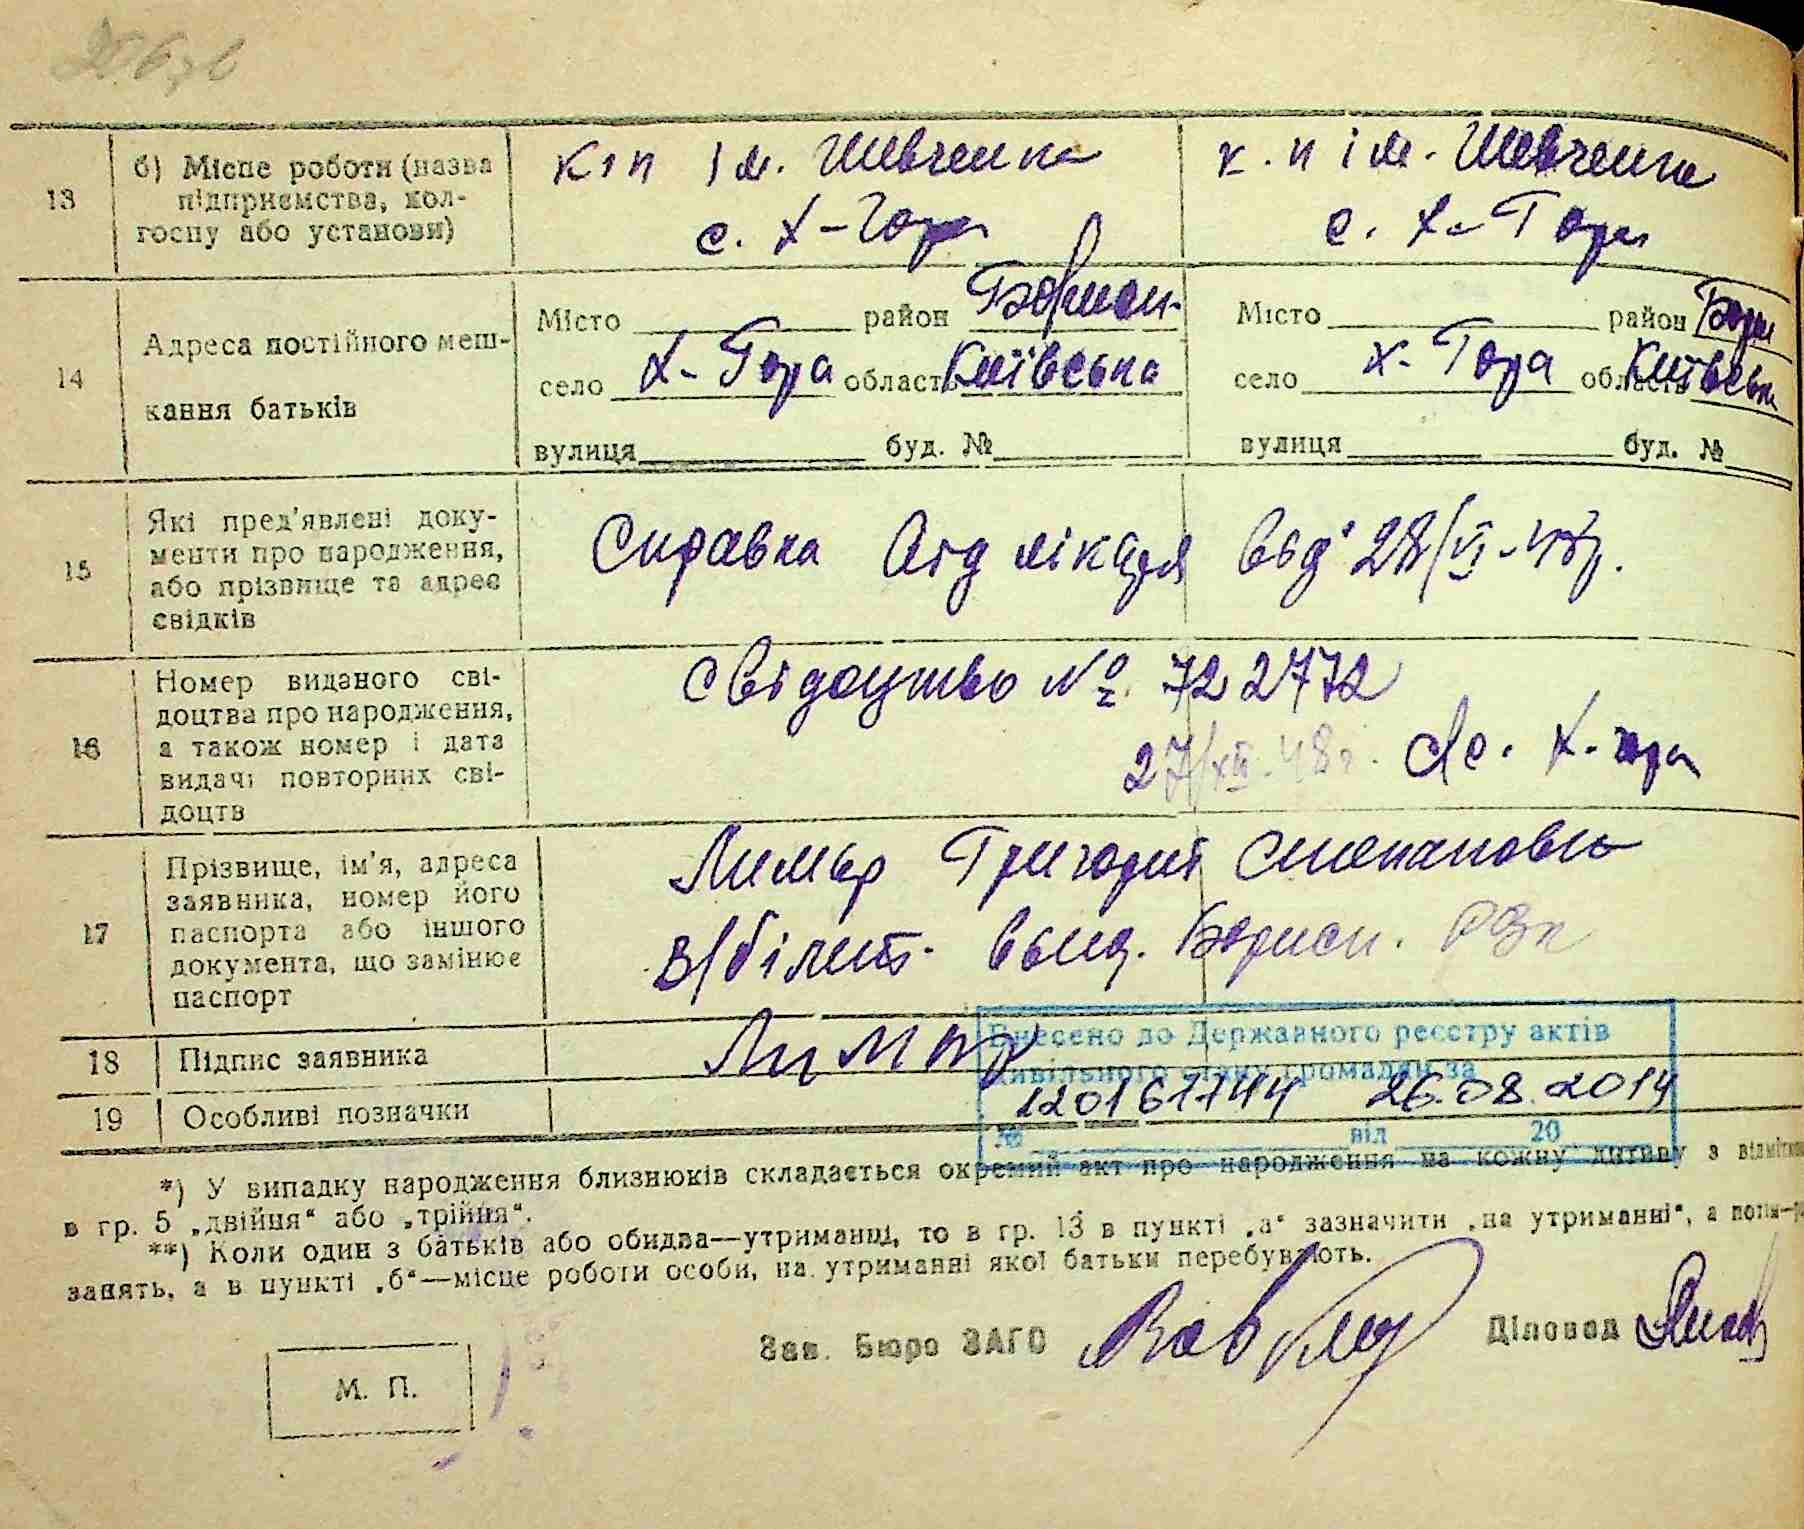 13
б) Місце роботи (назва підприємства, колгоспу або установи)
кгп ім. Шевченка
с. Х-Гора
к. п ім. Шевченка
с. Х-Гора
14
Адреса постійного мешкання батьків
Місто район Борисп.
село Х-Гора область Київська
вулиця буд. №
Місто район Бори
село Х-Гора область Київськ
вулиця буд. №
15
Які пред'явлені документи про народження, або прізвище та адрес свідків
Справка лікаря від 28/VI-48р.
16
Номер виданого свідоцтва про народження, а також номер і дата видачі повторних свідоцтв
свідоцтво № 722772
27/XII-48г. с. Х-гора
17
Прізвище, ім'я, адреса заявника, номер його паспорта або іншого документа, що замінює паспорт
Лимар Григорий Степанович
в/білет. выд. Борисп. РВк
18
Підпис заявника
Лимар
19
Особливі позначки
Внесено до Державного реєстру актів
цивільного стану громадян за
120161744 26.08.2014
№ від 20
*) У випадку народження близнюків складається окремий акт про народження на кожну дитину з відміткою
в гр. 5 „двійня“ або „трійня“.
**) Коли один з батьків або обидва—утриманці, то в гр. 13 в пункті „а“ зазначити „на утриманні“, а
занять, а в пункті „б“—місце роботи особи, на утриманні якої батьки перебувають.
Зав. Бюро ЗАГС
Діловод
М. П.